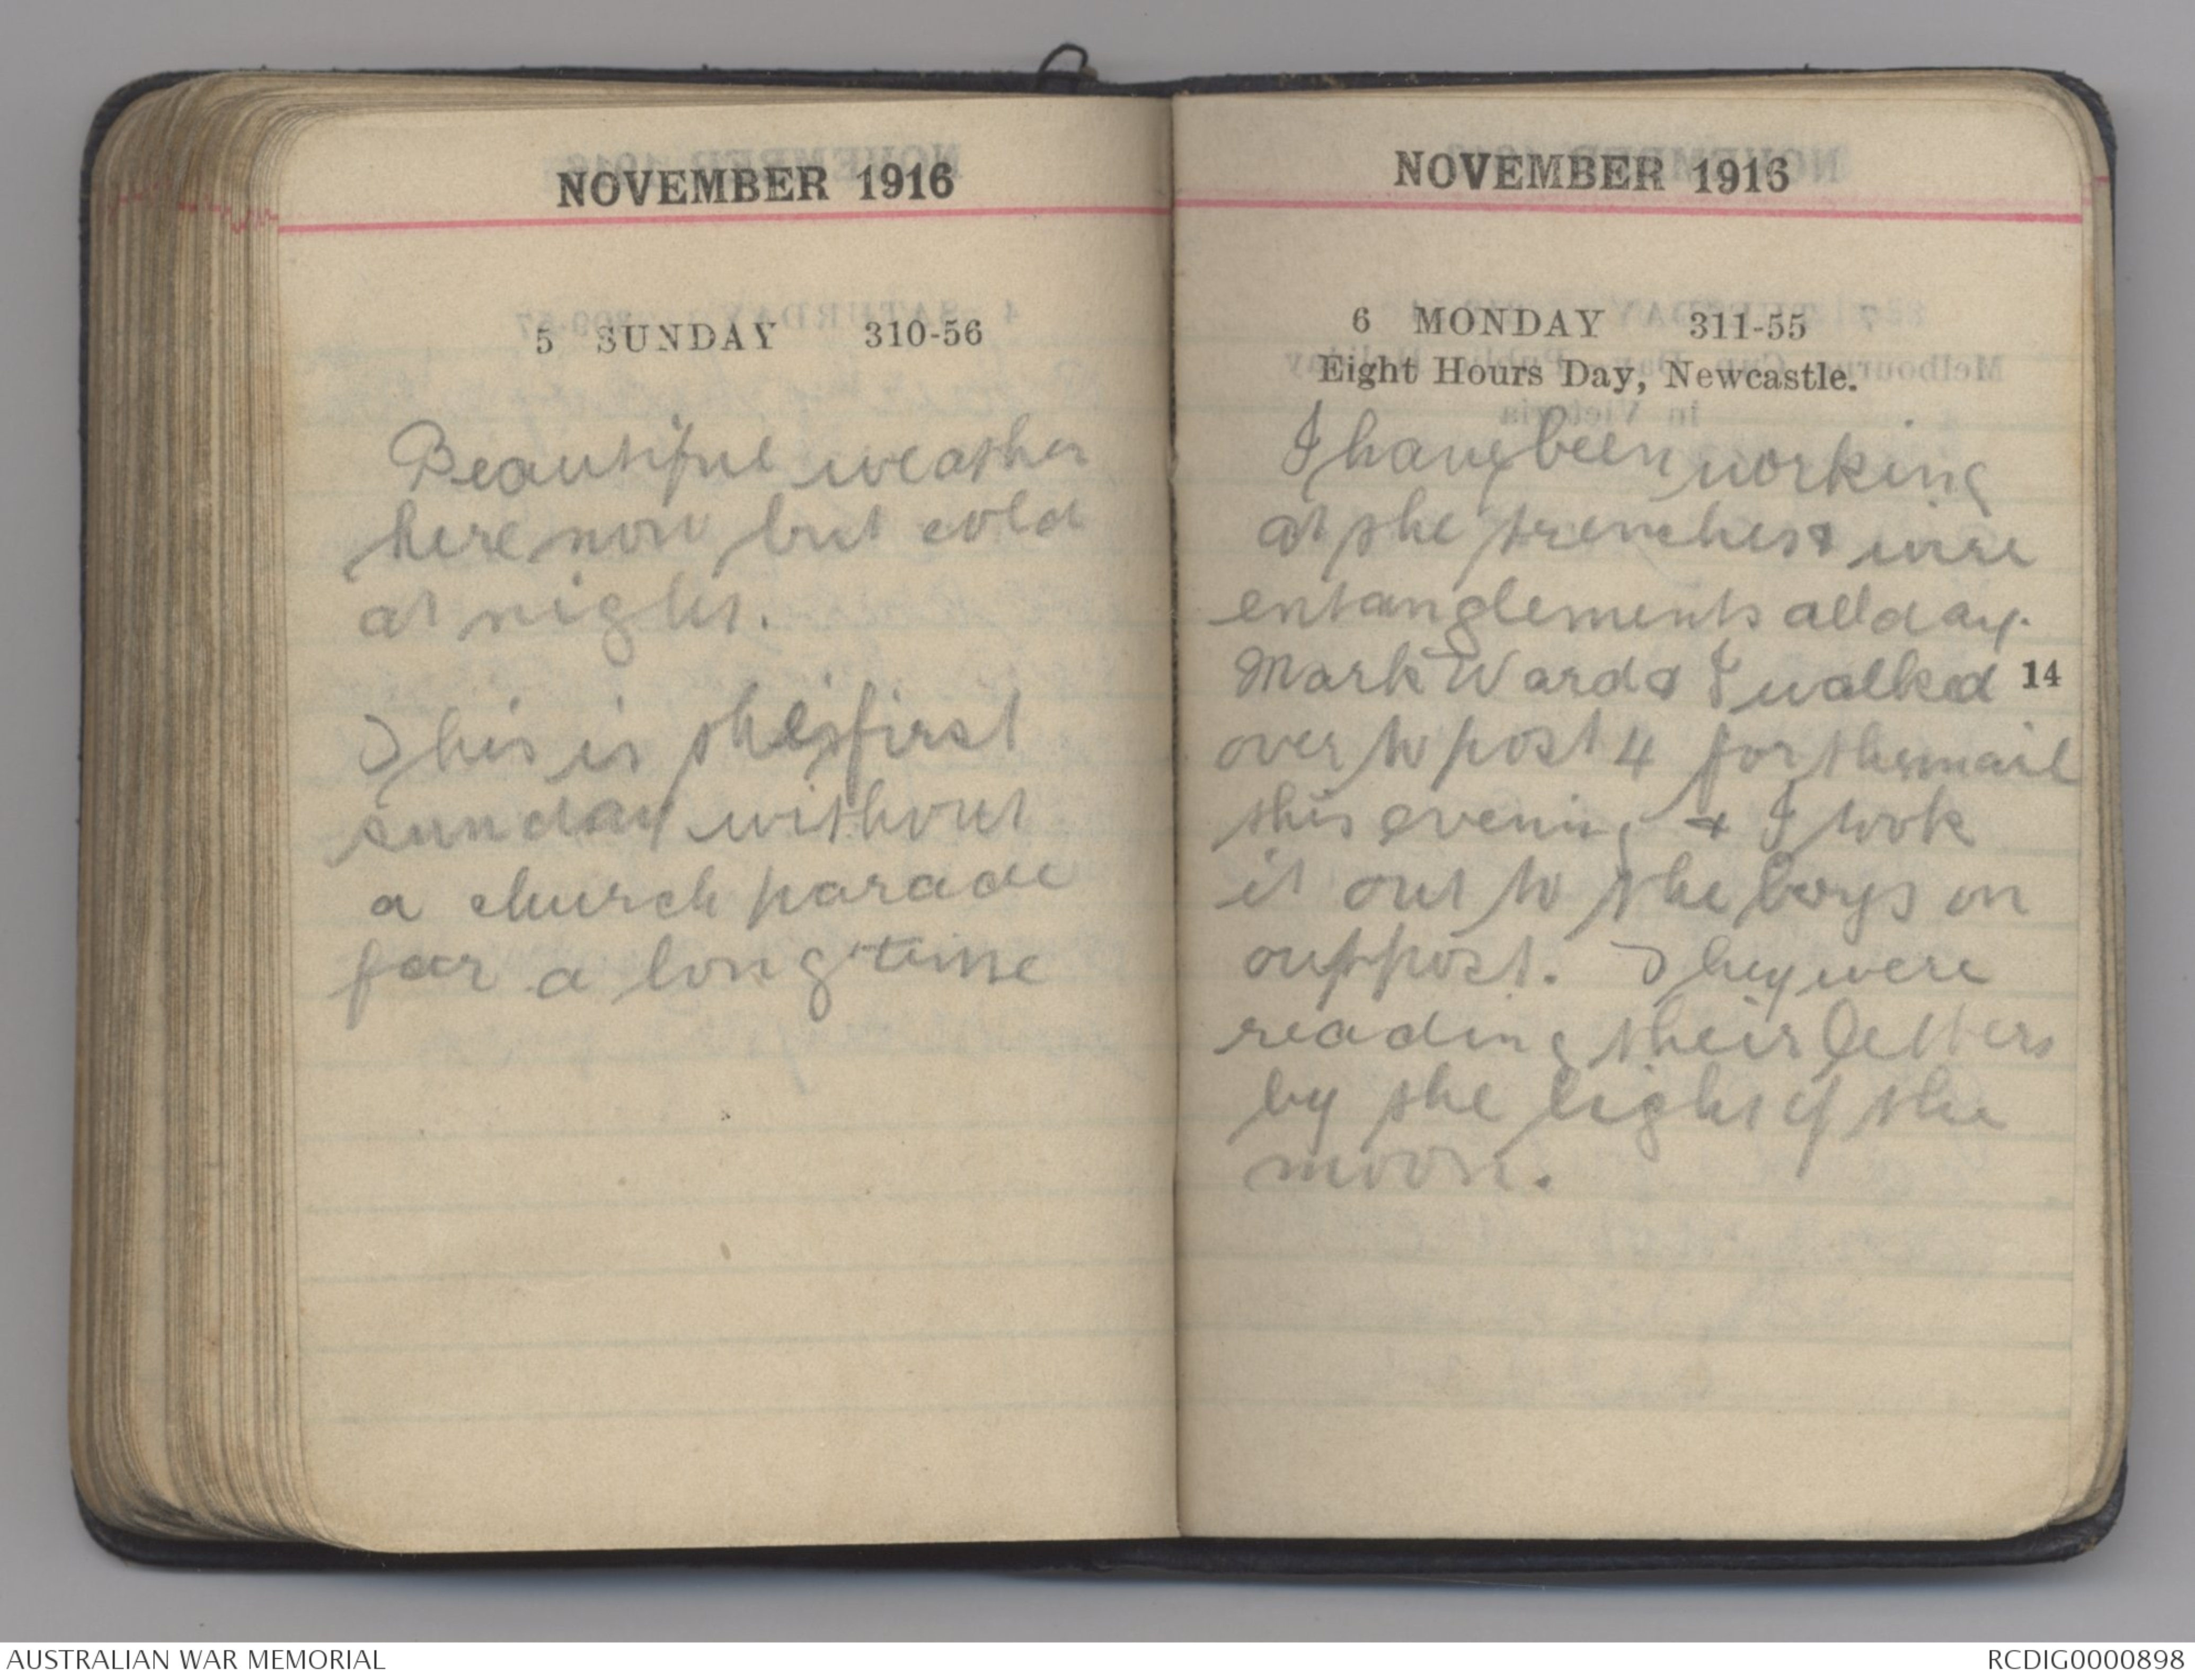 NOVEMBER 1916
5 SUNDAY 310-56
Beautiful weather
here now but cold
at night.
This is the first
sunday without
a church parade
for a long time
NOVEMBER 1916
6 MONDAY 311-55
Eight Hours Day, Newcastle.
I have been working
at the trenches & wire
entanglements all day.
Mark Ward & I walked 14
over to post 4 for the mail
this evening & I took
it out to the boys on
outpost. They were
reading their letters
by the light of the
moon.
AUSTRALIAN WAR MEMORIAL
RCDIG0000898